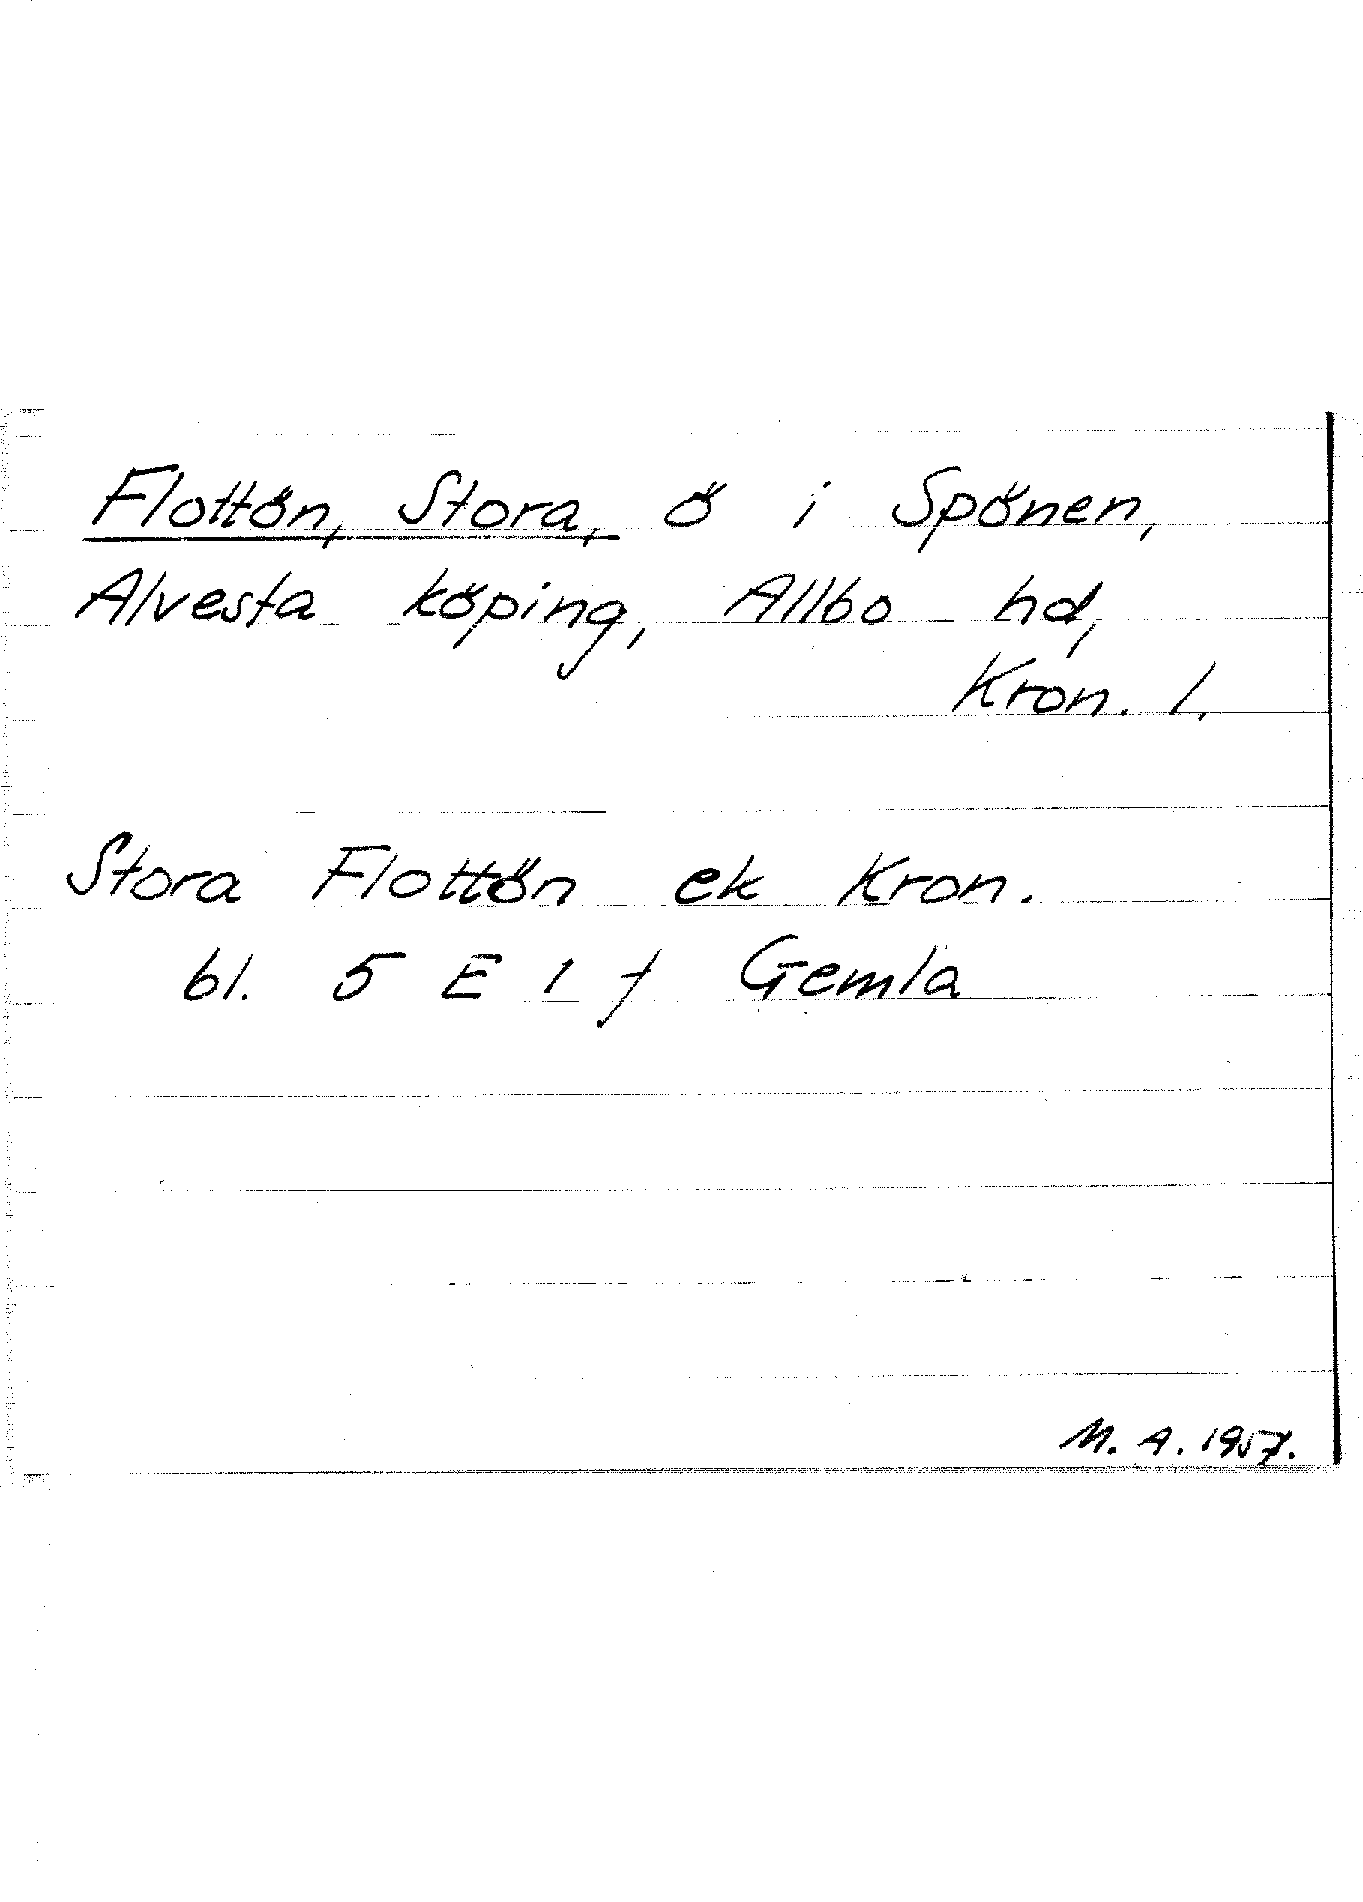 Flottön, Stora, ö i Spönen,
Alvesta köping, Allbo hd,
Kron. l.
Stora Flottön ek Kron.
bl. 5 E 1 f Gemla
M. A. 1957.